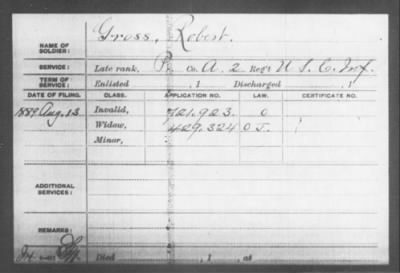 NAME OF SOLDIER: Gross, Robert.
SERVICE: Late rank, P Co. A, 2 Reg't U S C Inf.
TERM OF SERVICE: Enlisted , 1 Discharged , 1
DATE OF FILING. CLASS. APPLICATION NO. LAW. CERTIFICATE NO.
1889 Aug. 13 Invalid, 721.923. O
Widow, 429.324 O J.
Minor,
ADDITIONAL SERVICES:
REMARKS:
Died , 1 , at